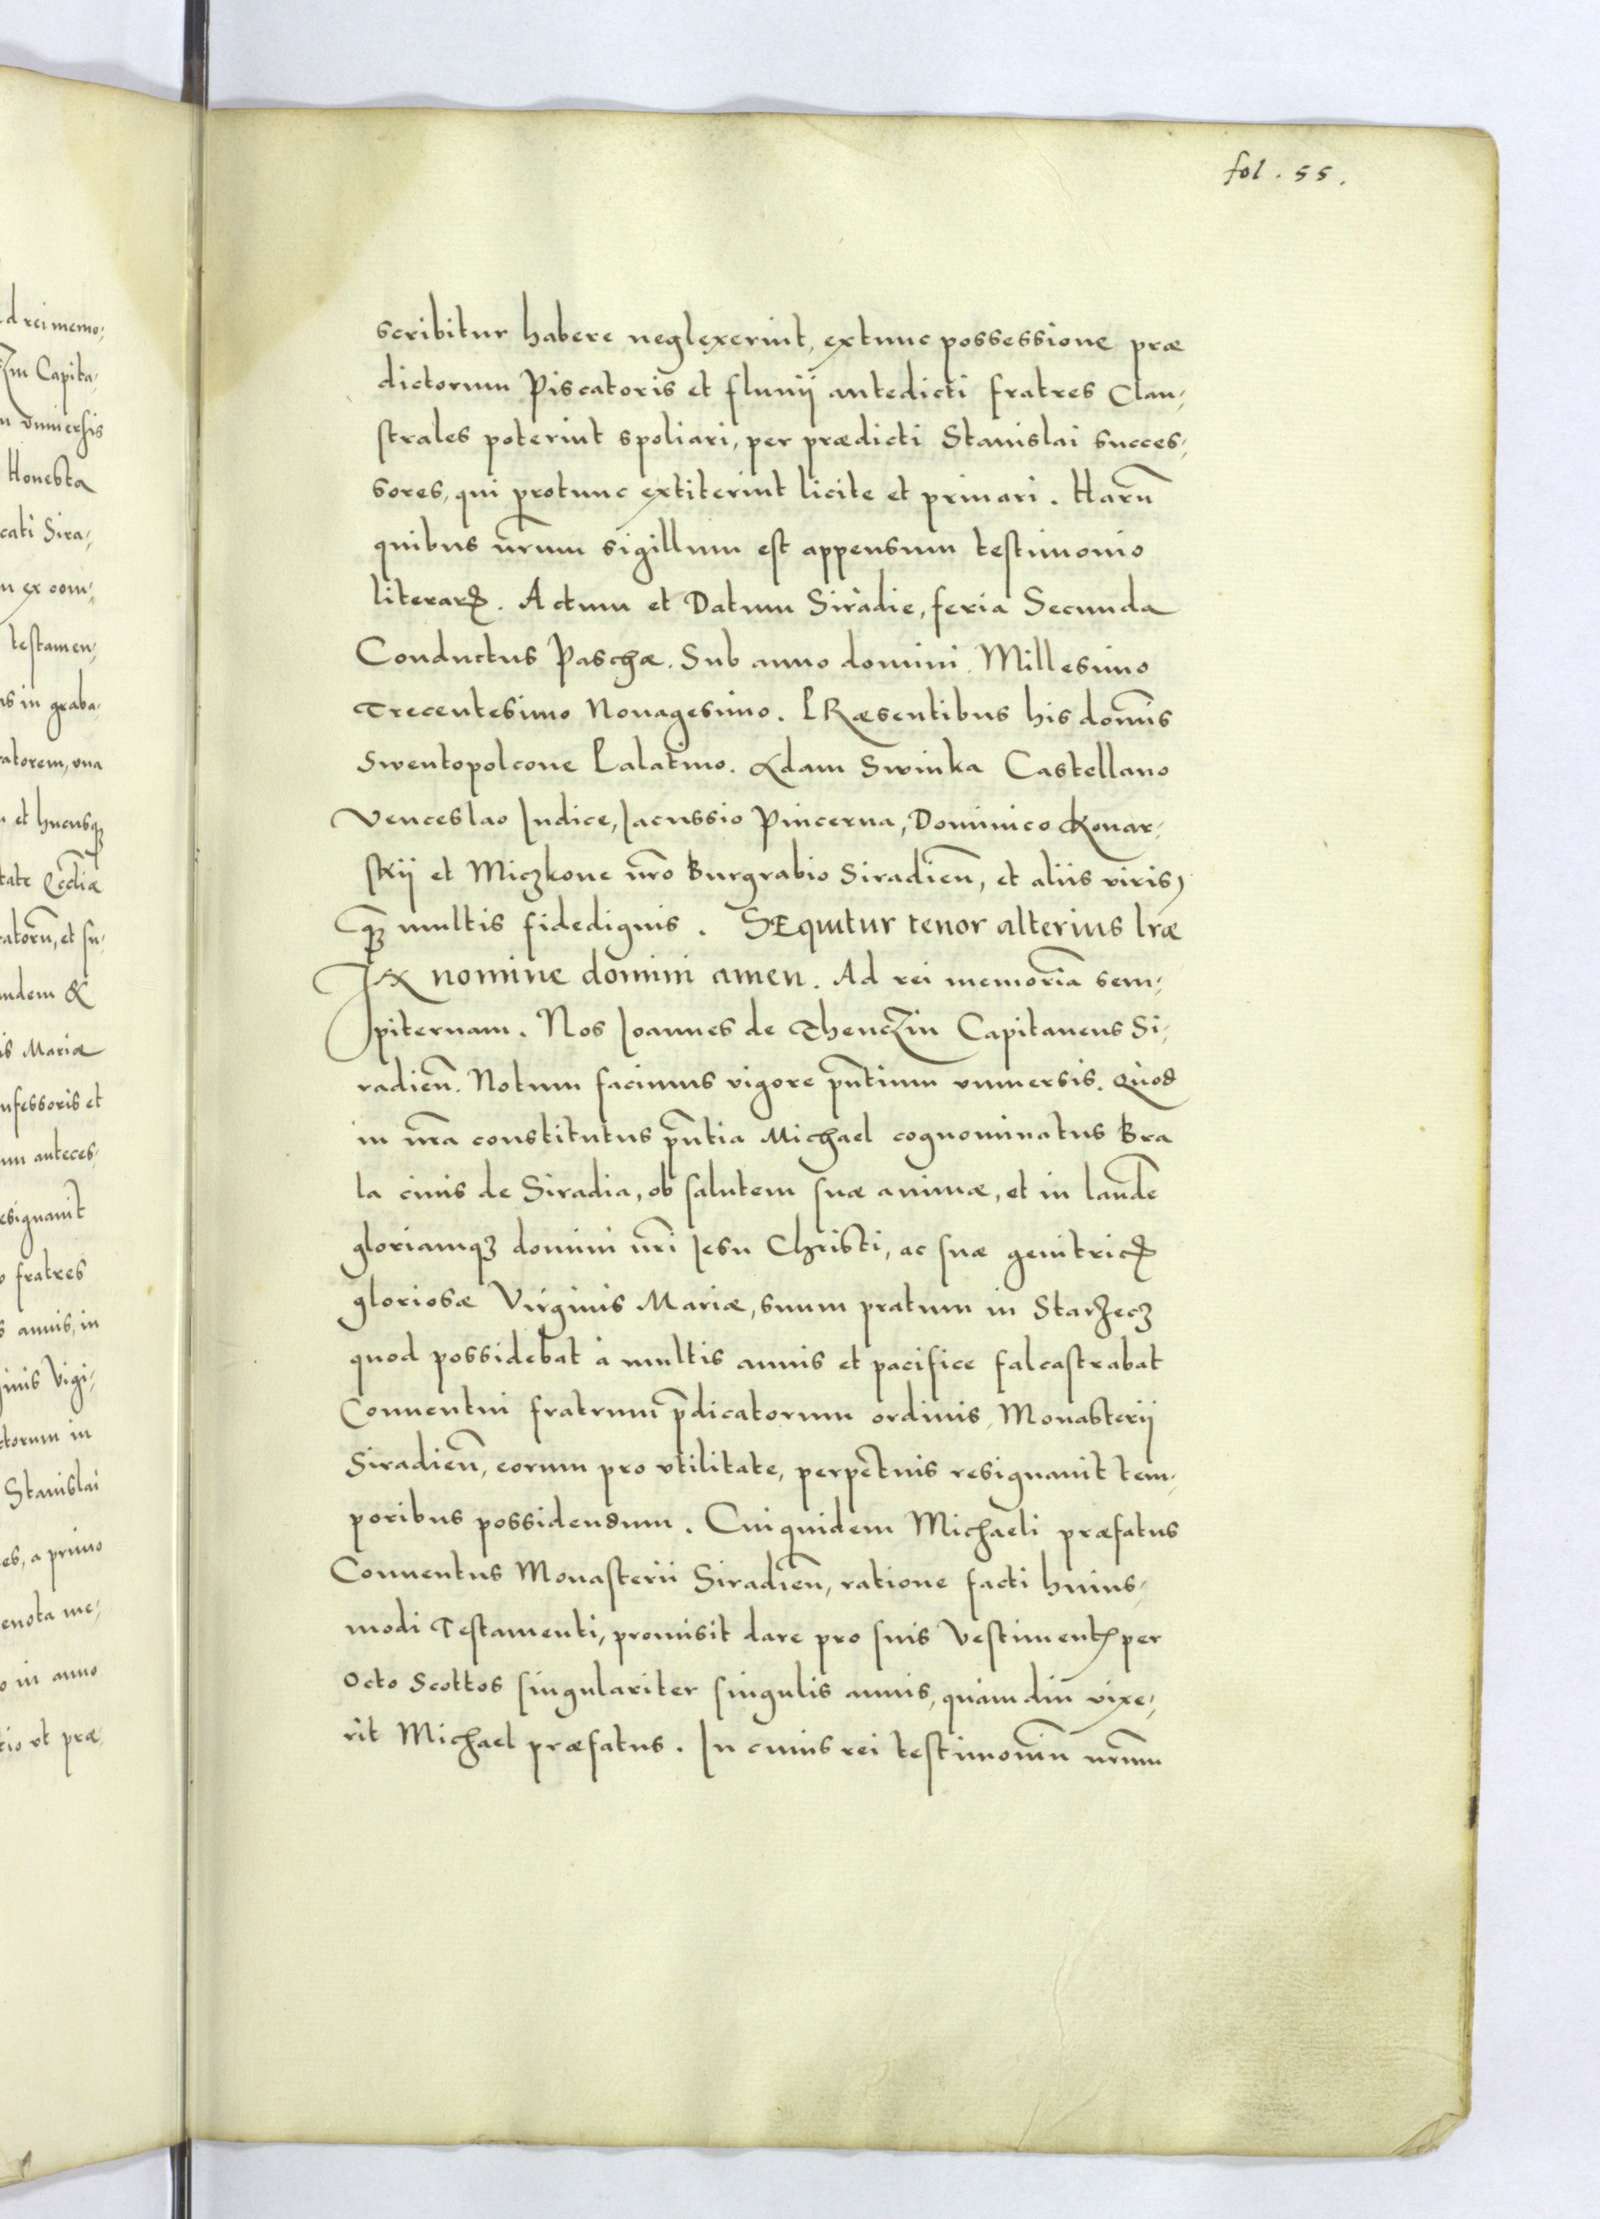 fol. 55.
d rei memo,
Zin Capita,
vniuersis
Honesta
cati Sira,
ex com,
testamen,
in graba,
atorem, vna
et hucusq3
tate Eccłiæ
atorū, et su,
ndem &
is Mariæ
nfessoris et
um anteces,
esignauit
fratres
s annis, in
ginis Vigi,
ctorum in
Stanislai
es, a primo
enota me,
in anno
tio vt præ,
scribitur habere neglexerint, extunc possessione præ
dictorum Piscatoris et fluuij antedicti fratres Clau,
strales poterint spoliari, per prædicti Stanislai succes,
sores, qui protunc extiterint licite et priuari. Harū
quibus nr̄um sigillum est appensum testimonio
literarꝝ. Actum et Datum Siradie, feria Secunda
Conductus Paschæ. Sub anno domini Millesimo
Trecentesimo Nonagesimo. PRæsentibus his domīs
Swentopolcone Palatino. Adam Swinka Castellano
Venceslao Iudice, Iacussio Pincerna, Dominico Konar,
skij et Miczkone nr̄o Burgrabio Siradien̄, et aliis viris,
q3 multis fidedignis. SEquitur tenor alterius lr̄æ
IN nomine domini amen. Ad rei memoriā sem,
piternam. Nos Ioannes de ThenćZin Capitaneus Si,
radien̄. Notum facimus vigore pn̄tium vniuersis. Quod
in nr̄a constitutus pn̄tia Michael cognominatus Bra
la ciuis de Siradia, ob salutem suæ animæ, et in laudē
gloriamq3 domini nr̄i Iesu Christi, ac suæ genitricꝭ
gloriosæ Virginis Mariæ, suum pratum in StarZecz
quod possidebat à multis annis et pacifice falcastrabat
Conuentui fratrum p̄dicatorum ordinis Monasterij
Siradien̄, eorum pro vtilitate, perpetuis resignauit tem,
poribus possidendum. Cuiquidem Michaeli præfatus
Conuentus Monasterii Siradien̄, ratione facti huius,
modi Testamenti, promisit dare pro suis Vestimentꝭ per
Octo Scottos singulariter singulis annis, quàmdiu vixe,
rit Michael præfatus. In cuius rei testimoniū nr̄um